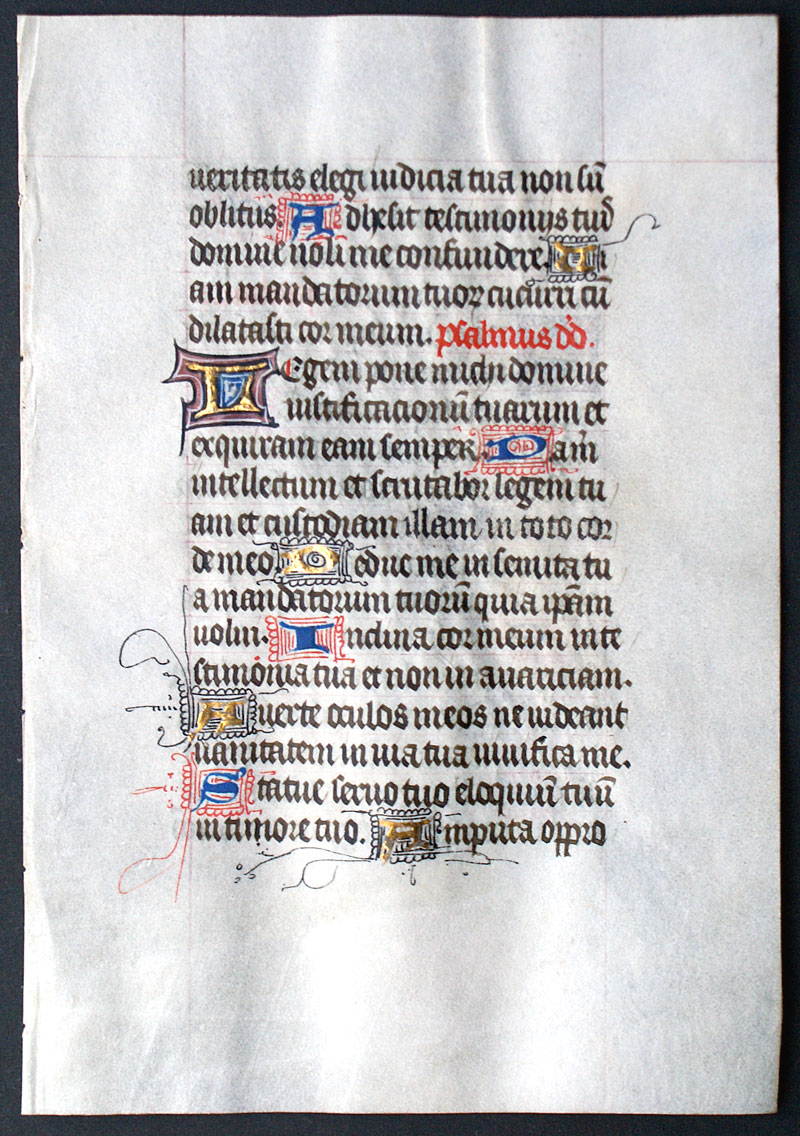 ueritatis elegi iudicia tua non sū
oblitus. Adhesit testimonijs tuis
domine noli me confundere. Ui
am mandatorum tuoꝝ cucurri cū
dilatasti cor meum. psalmus dd.
Legem pone michi domine
iustificacionū tuarum et
exquiram eam semper. Da m̄
intellectum et scrutabor legem tu
am et custodiam illam in toto cor
de meo. Deduc me in semita tu
a mandatorum tuorū quia ipām
uolui. Inclina cor meum in te
stimonia tua et non in auariciam.
Auerte oculos meos ne uideant
uanitatem in uia tua uiuifica me.
Statue seruo tuo eloquiū tuū
in timore tuo. Amputa oppro